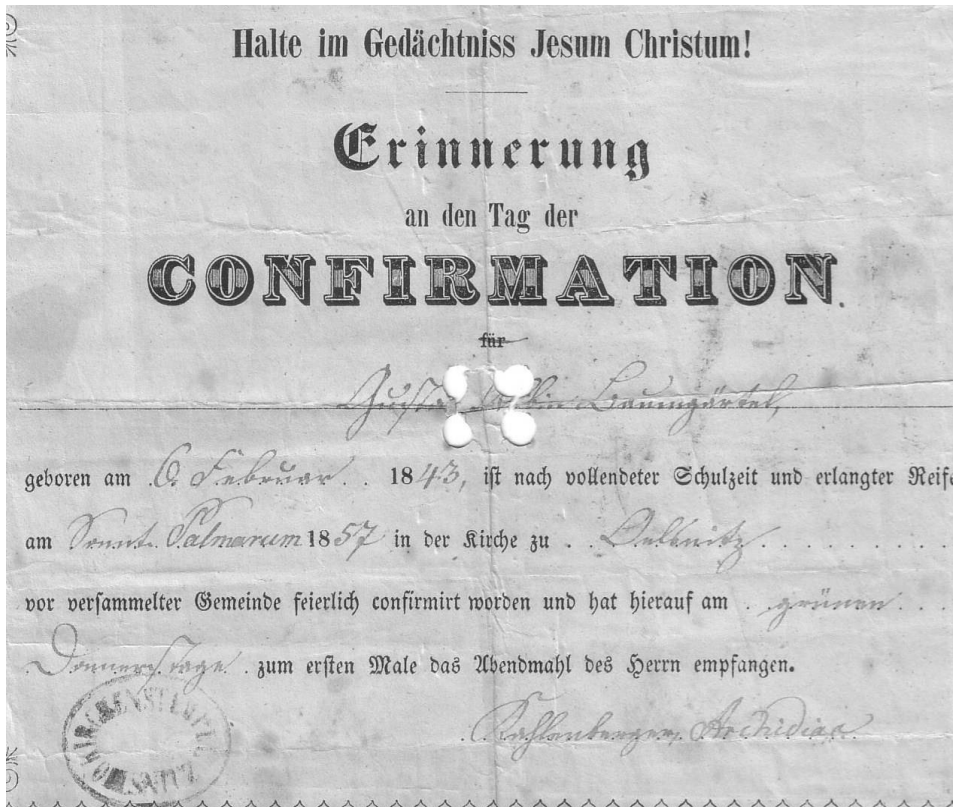 Halte im Gedächtniss Jesum Christum!
Erinnerung
an den Tag der
CONFIRMATION.
für
Gustav Baumgärtel,
geboren am 6. Februar . . 1843, ist nach vollendeter Schulzeit und erlangter Reife
am Sonnt. Palmarum 1857 in der Kirche zu . Oelsnitz . . . . . . . .
vor versammelter Gemeinde feierlich confirmirt worden und hat hierauf am . grünen . . .
Donnerstage . zum ersten Male das Abendmahl des Herrn empfangen.
Kahlenberger, Archidiac.
KIRCHENSTEMPEL